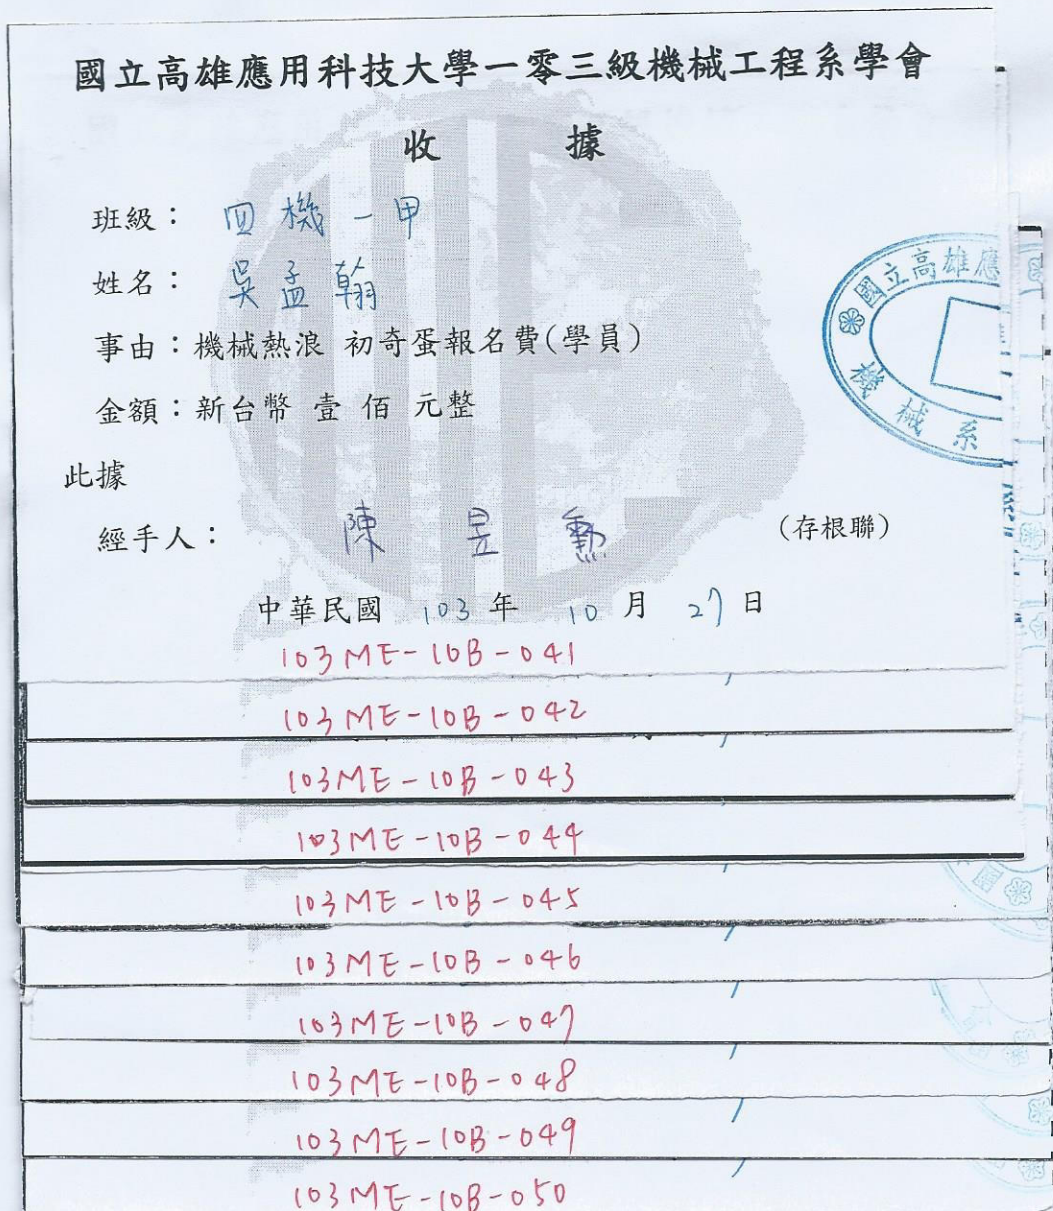 國立高雄應用科技大學一零三級機械工程系學會
收 據
班級： 四機一甲
姓名： 吳孟翰
事由：機械熱浪 初奇蛋報名費(學員)
金額：新台幣 壹 佰 元整
此據
經手人： 陳 昱 勳 (存根聯)
中華民國 103 年 10 月 27 日
國立高雄應
機械系
103ME-10B-041
103ME-10B-042
103ME-10B-043
103ME-10B-044
103ME-10B-045
103ME-10B-046
103ME-10B-047
103ME-10B-048
103ME-10B-049
103ME-10B-050